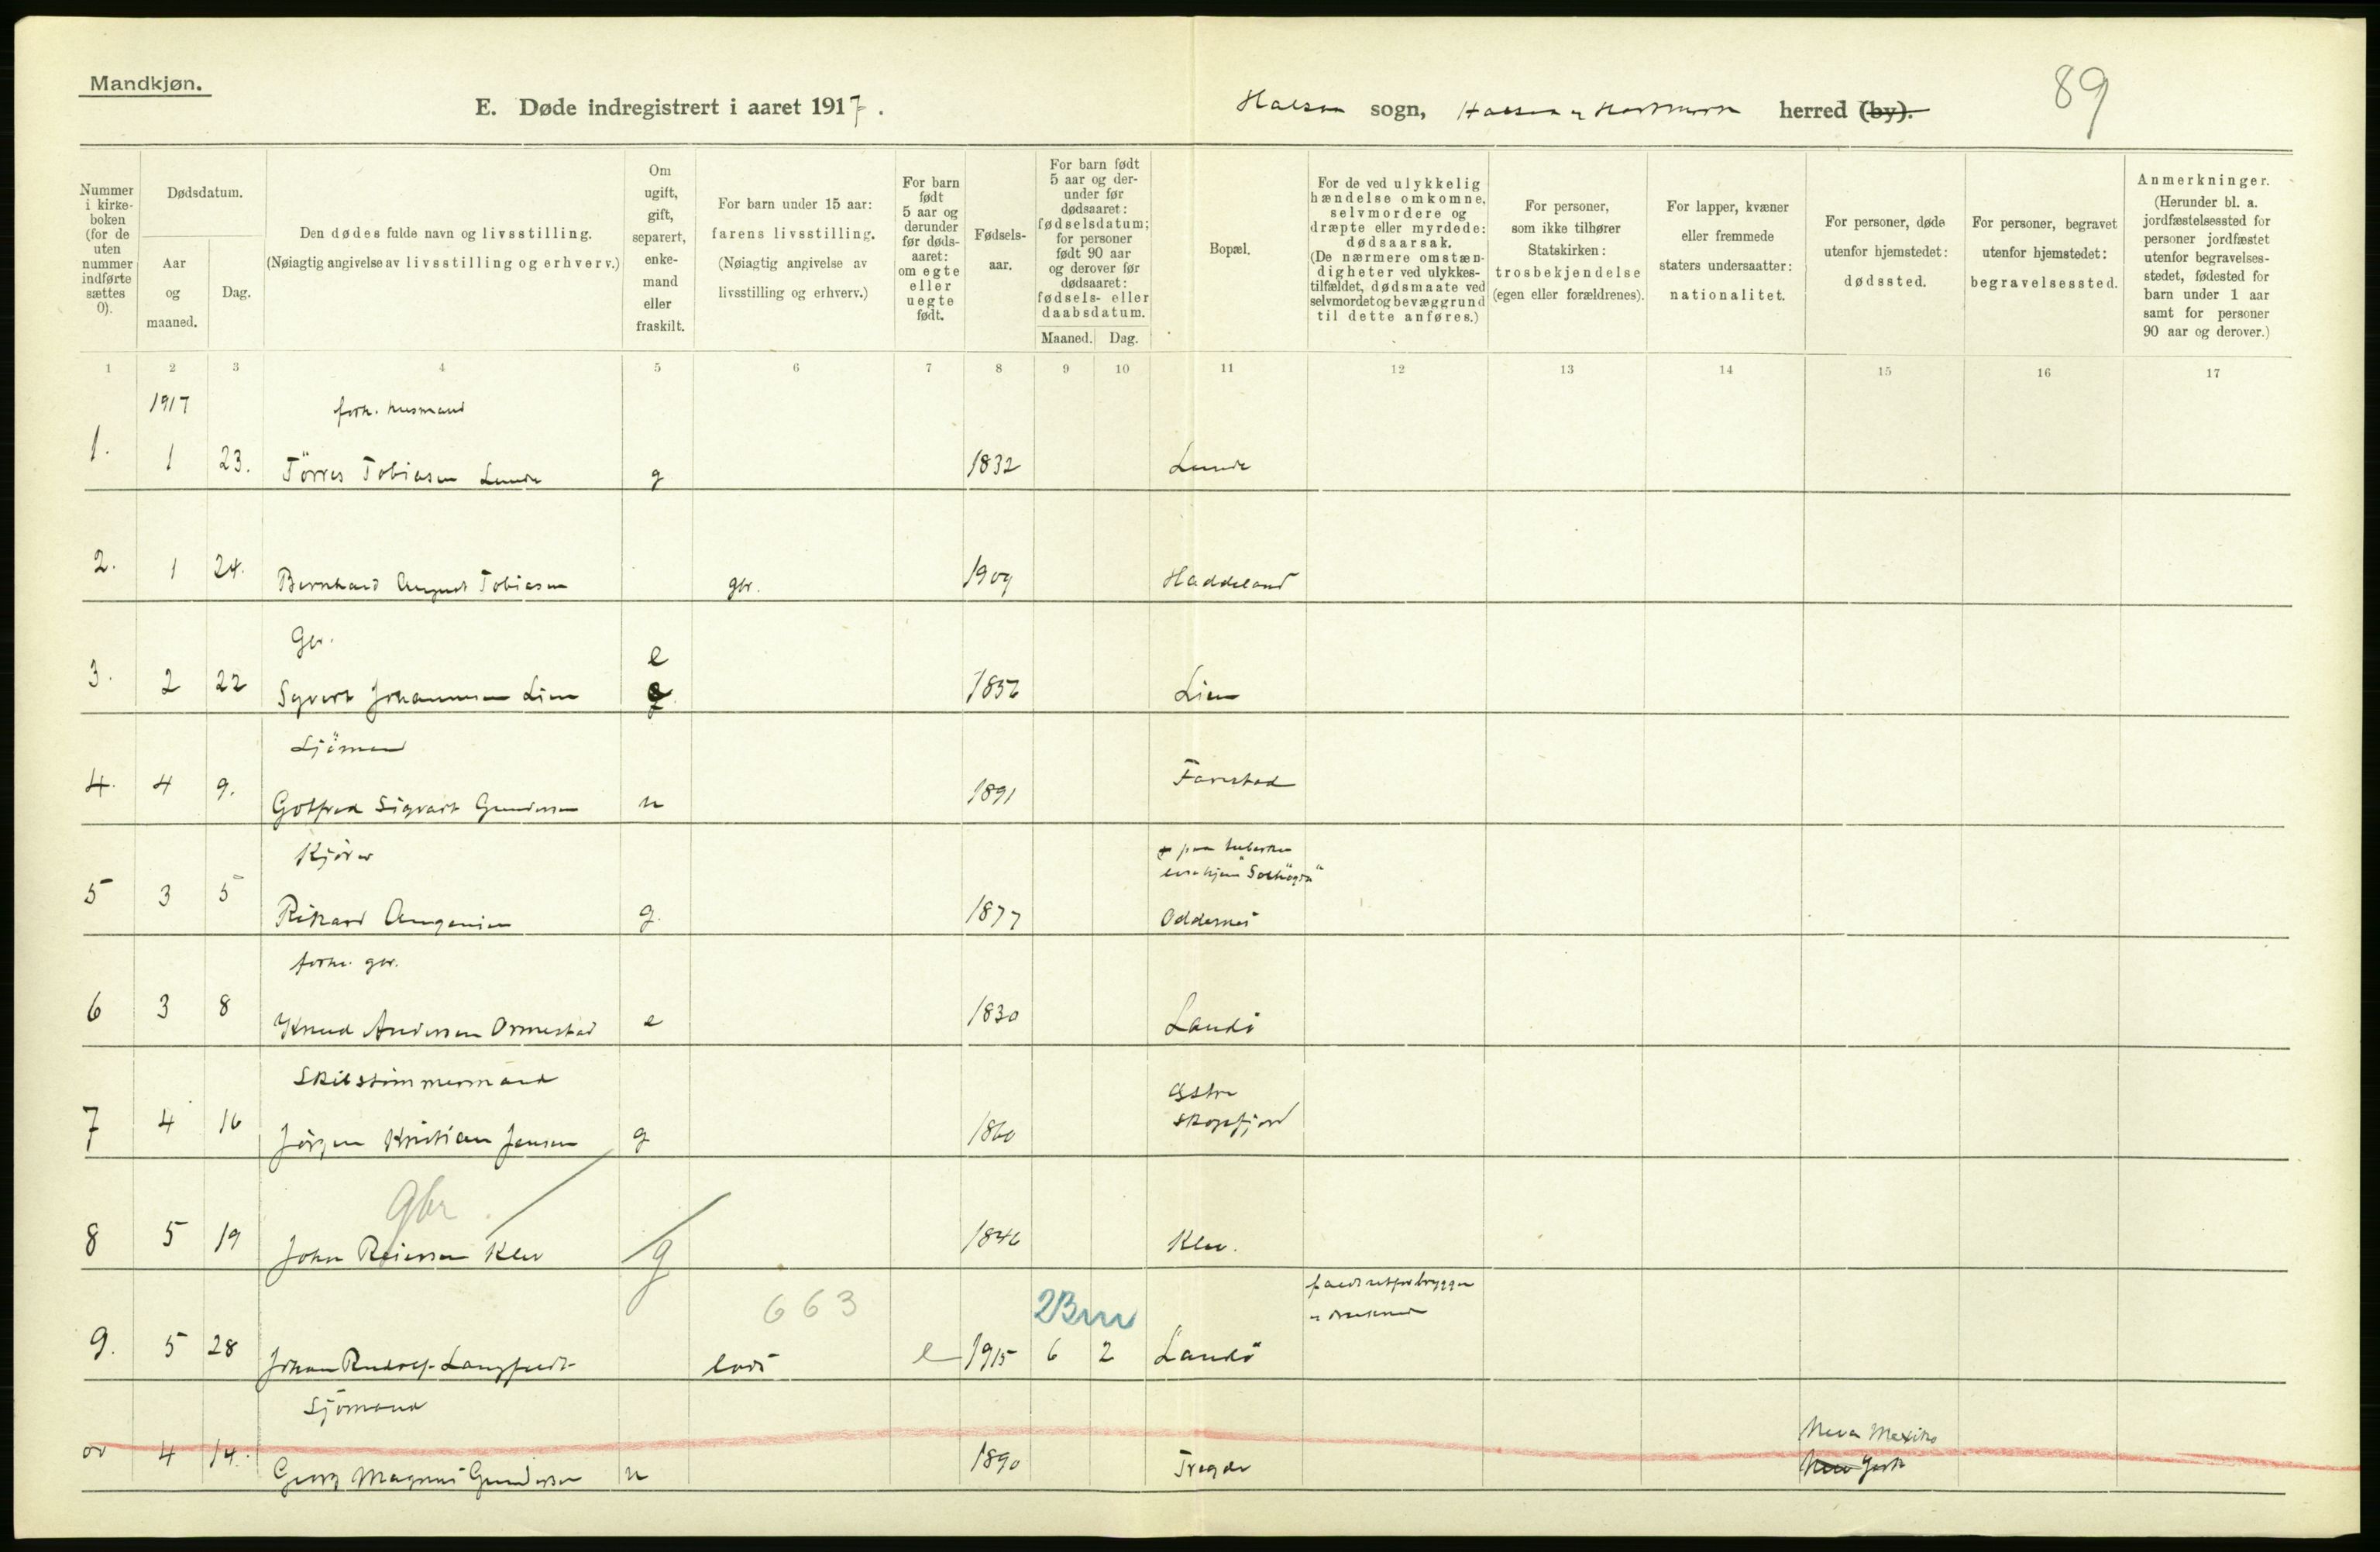 Mandkjøn.
E. Døde indregistrert i aaret 1917.
Halsaa sogn, Halsaa og herred (by).
89
Nummer i kirke-boken (for de uten nummer indførte sættes 0).
Dødsdatum.
Aar og maaned.
Dag.
Den dødes fulde navn og livsstilling.
(Nøiagtig angivelse av livsstilling og erhverv.)
Om ugift, gift, separert, enke-mand eller fraskilt.
For barn under 15 aar: farens livsstilling. (Nøiagtig angivelse av livsstilling og erhverv.)
For barn født 5 aar og derunder før døds-aaret: om egte eller uegte født.
Fødsels-aar.
For barn født 5 aar og der-under før dødsaaret: fødselsdatum; for personer født 90 aar og derover før dødsaaret: fødsels- eller daabsdatum.
Maaned. Dag.
Bopæl.
For de ved ulykkelig hændelse omkomne, selvmordere og dræpte eller myrdede: dødsaarsak. (De nærmere omstæn-digheter ved ulykkes-tilfældet, dødsmaate ved selvmordet og bevæggrund til dette anføres.)
For personer, som ikke tilhører Statskirken: trosbekjendelse (egen eller forældrenes).
For lapper, kvæner eller fremmede staters undersaatter: nationalitet.
For personer, døde utenfor hjemstedet: dødssted.
For personer, begravet utenfor hjemstedet: begravelsessted.
Anmerkninger. (Herunder bl. a. jordfæstelsessted for personer jordfæstet utenfor begravelses-stedet, fødested for barn under 1 aar samt for personer 90 aar og derover.)
1 2 3 4 5 6 7 8 9 10 11 12 13 14 15 16 17
1917
forh. husmand
1. 1 23. Törres Tobiasen Lunde g 1832 Lunde
2. 1 24. Bernhard August Tobiasen gbr. 1909 Haddeland
Gbr.
e
3. 2 22 Syvert Johannesen Lien 1856 Lien
Sjömand
4. 4 9. Gotfred Sigvart Gundersen u 1891 Farestad
Kjörer
paa
"Solhögda"
5 3 5 Rikard g. 1877 Oddernes
forh. gbr.
6 3 8 Knud Andersen Ormestad e 1830 Landö
Skibstømmermand
Östre
7 4 16 Jörgen Kristian Jensen g 1860 Skogsfjord
gbr.
8 5 19 John Reiersen Klev g 1846 Klev.
663
2Bm
faldt utfor bryggen
og druknede
9. 5 28 Johan Rudolf Langfeldt lods e 1915 6 2 Landö
Sjömand
New Mexiko
4 14. Georg Magnus Gundersen u 1890 Tregde New York